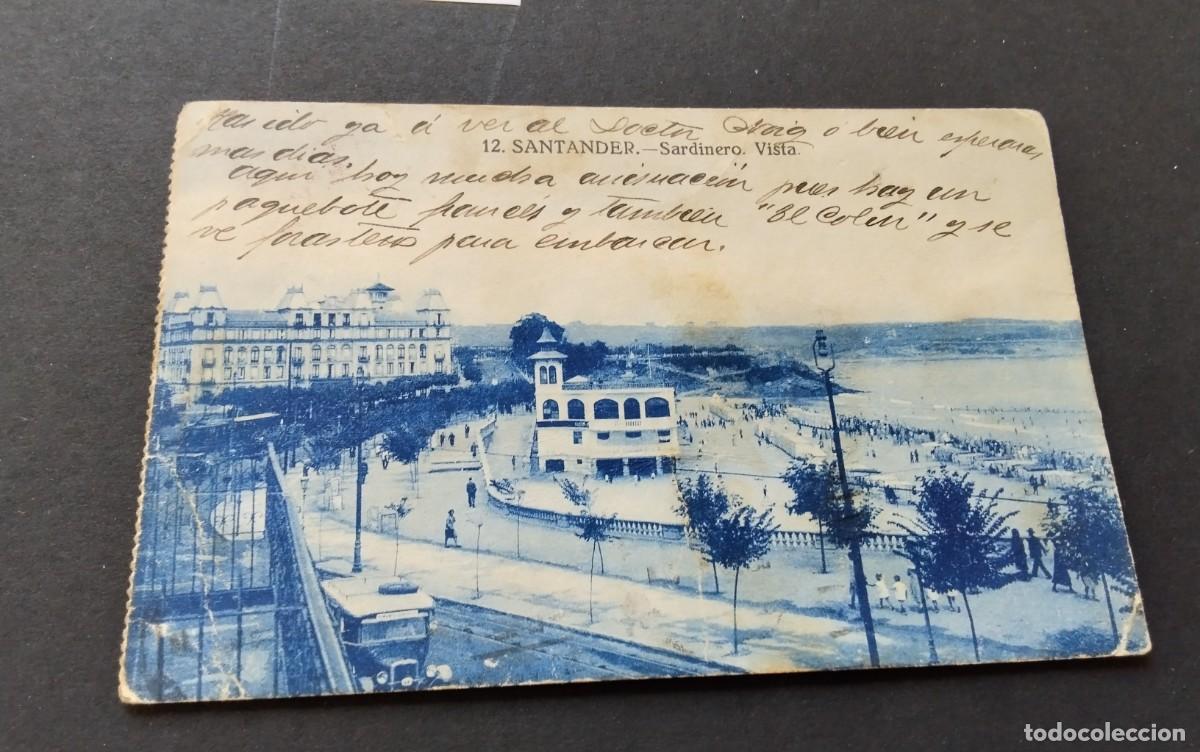 Has ido ya á ver al Doctor Roig ó bien esperaras
12. SANTANDER.—Sardinero. Vista.
mas dias.
Aqui hoy mucha animación pues hay un
paquebote francés y también "El Colón" y se
ve forastero para embarcar.
todocoleccion